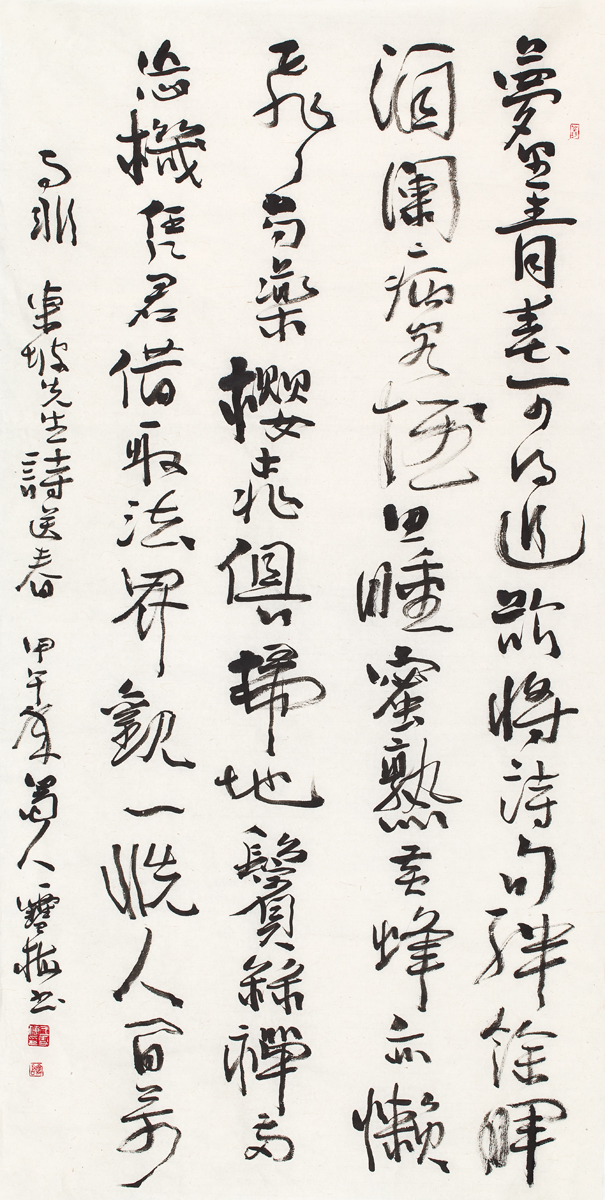 夢里青春可得追欲將詩句絆餘暉
酒闌病客惟思睡蜜熟黃蜂亦懶
飛芍藥櫻桃俱掃地鬢絲禪兩
忘機凭君借取法界觀一洗人間萬
事非 東坡先生詩送春 甲午 蜀人 梅書